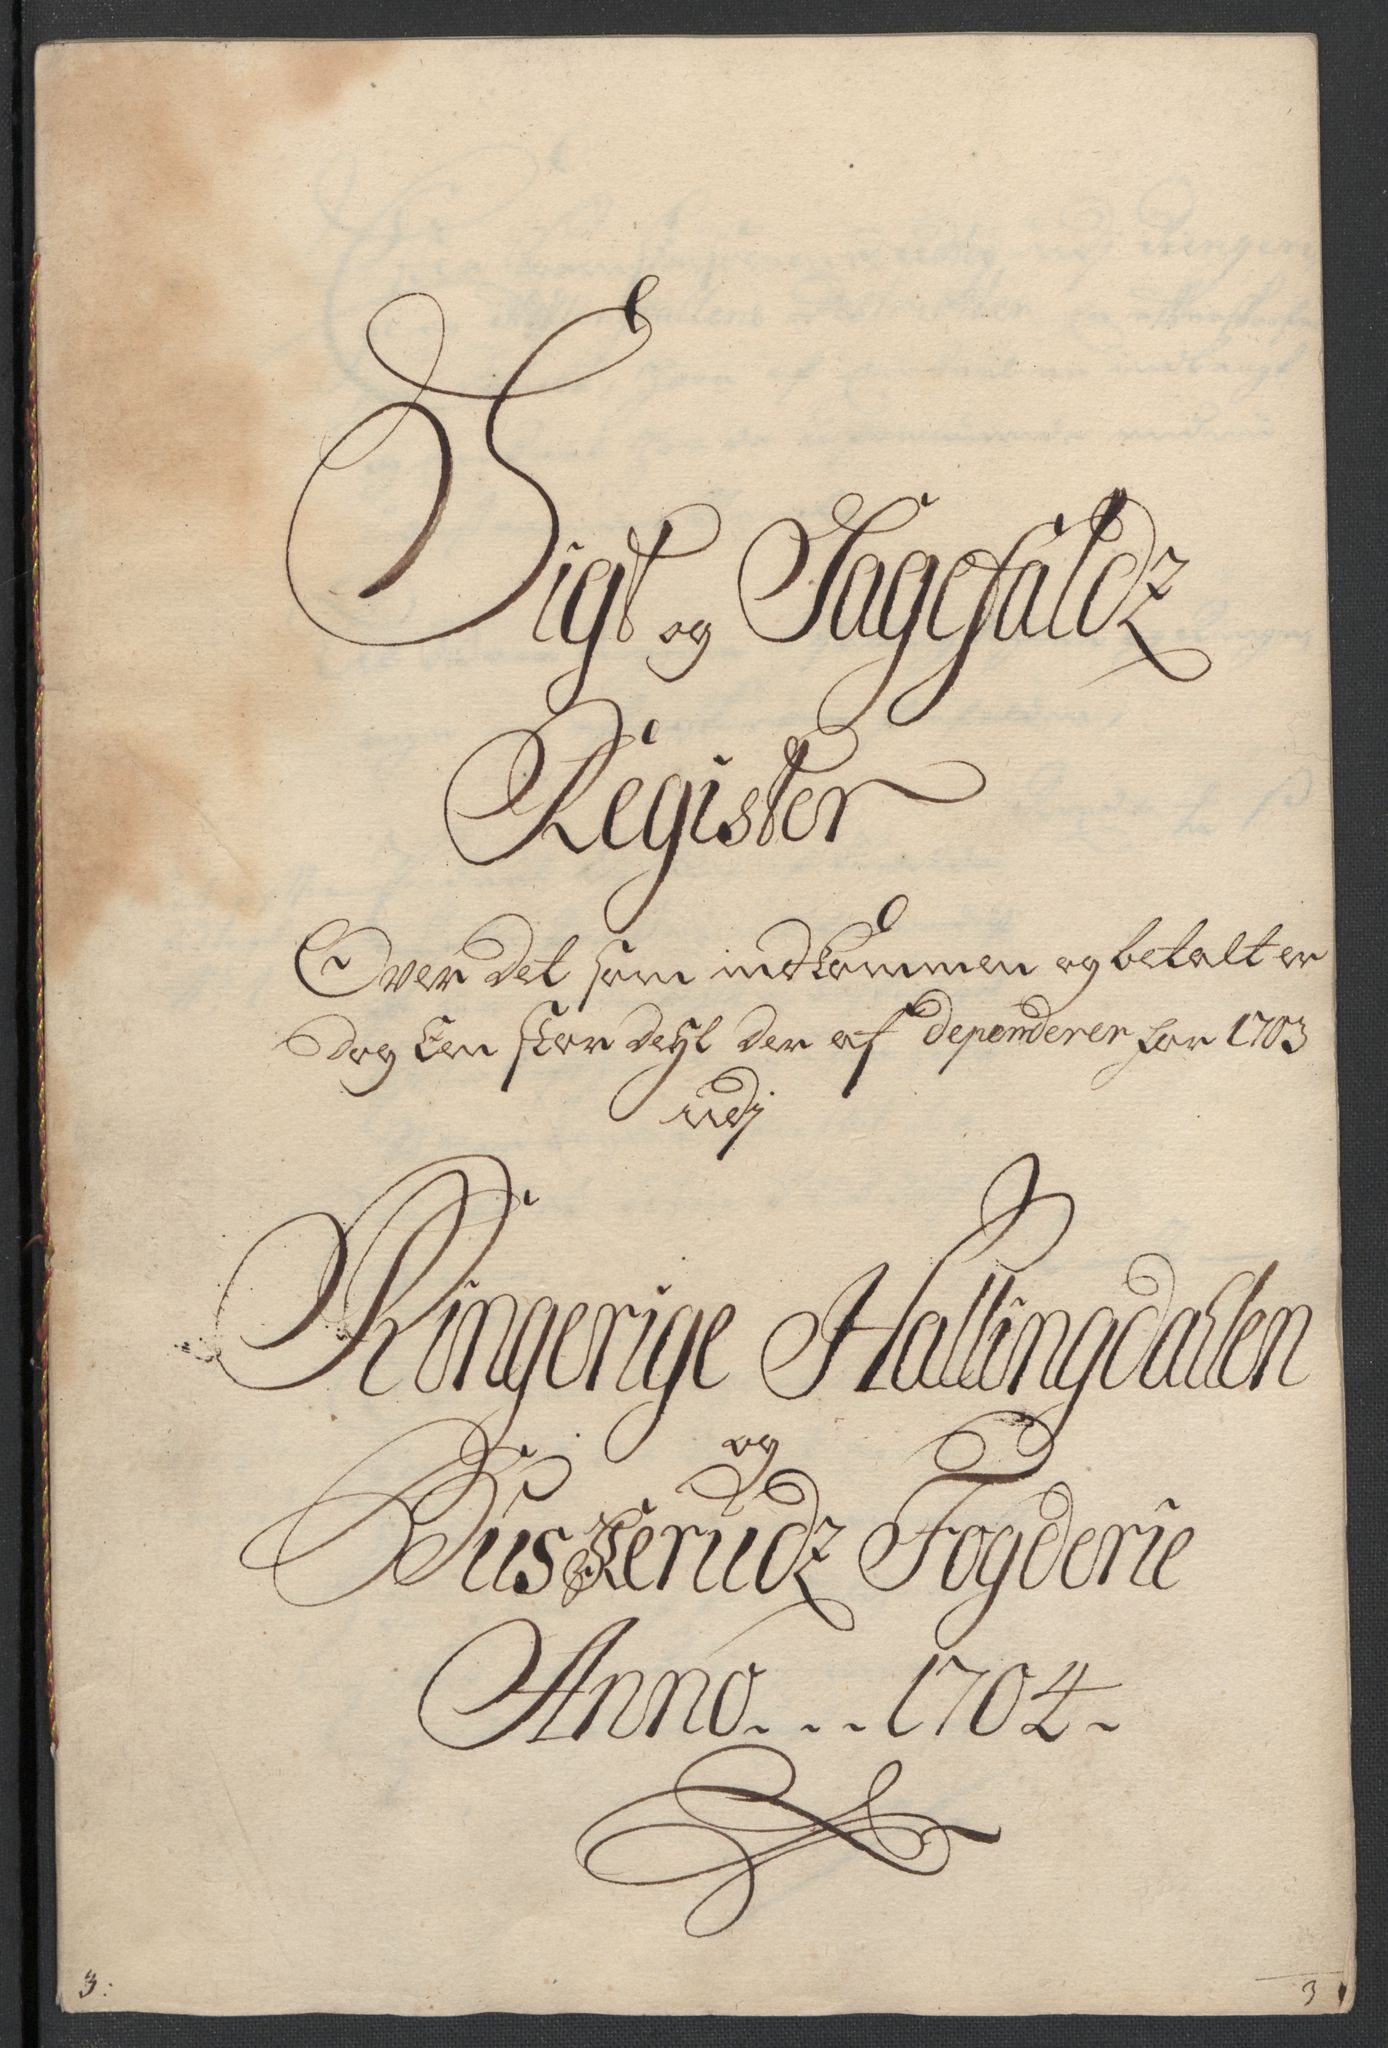 Sigt og Sagefaldz
Register
Over det som indkommen og betalt er
dog Een stor deyl der af dependerer for 1703
udj
Ringerige Hallingdallen
og
Busskerudz Fogderie
Anno... 1704.
3:
3